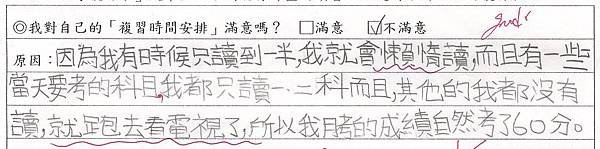 ◎我對自己的「複習時間安排」滿意嗎？ □滿意 ☑不滿意
原因：因為我有時候只讀到一半，我就會懶惰讀，而且有一些
當天要考的科目，我都只讀一、二科而且，其他的我都沒有
讀，就跑去看電視了，所以我月考的成績自然考了60分。